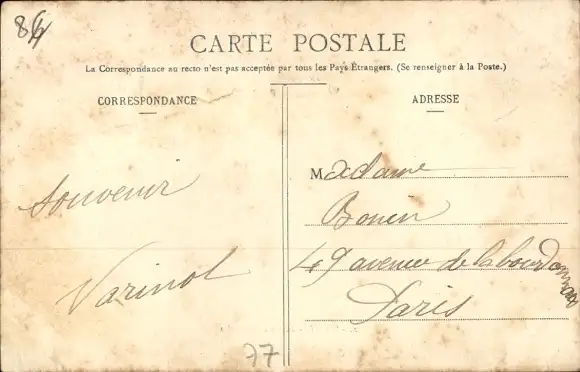 86
CARTE POSTALE
La Correspondance au recto n'est pas acceptée par tous les Pays Étrangers. (Se renseigner à la Poste.)
CORRESPONDANCE
ADRESSE
Souvenir
Varinot
Madame
Bonin
49 avenue de labourdonnais
Paris
77